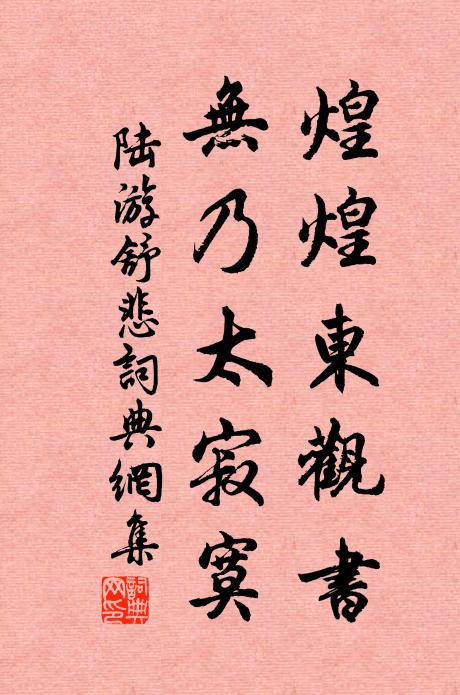 煌煌東觀書
無乃太寂寞
陆游舒悲詞典網集
詞典网印